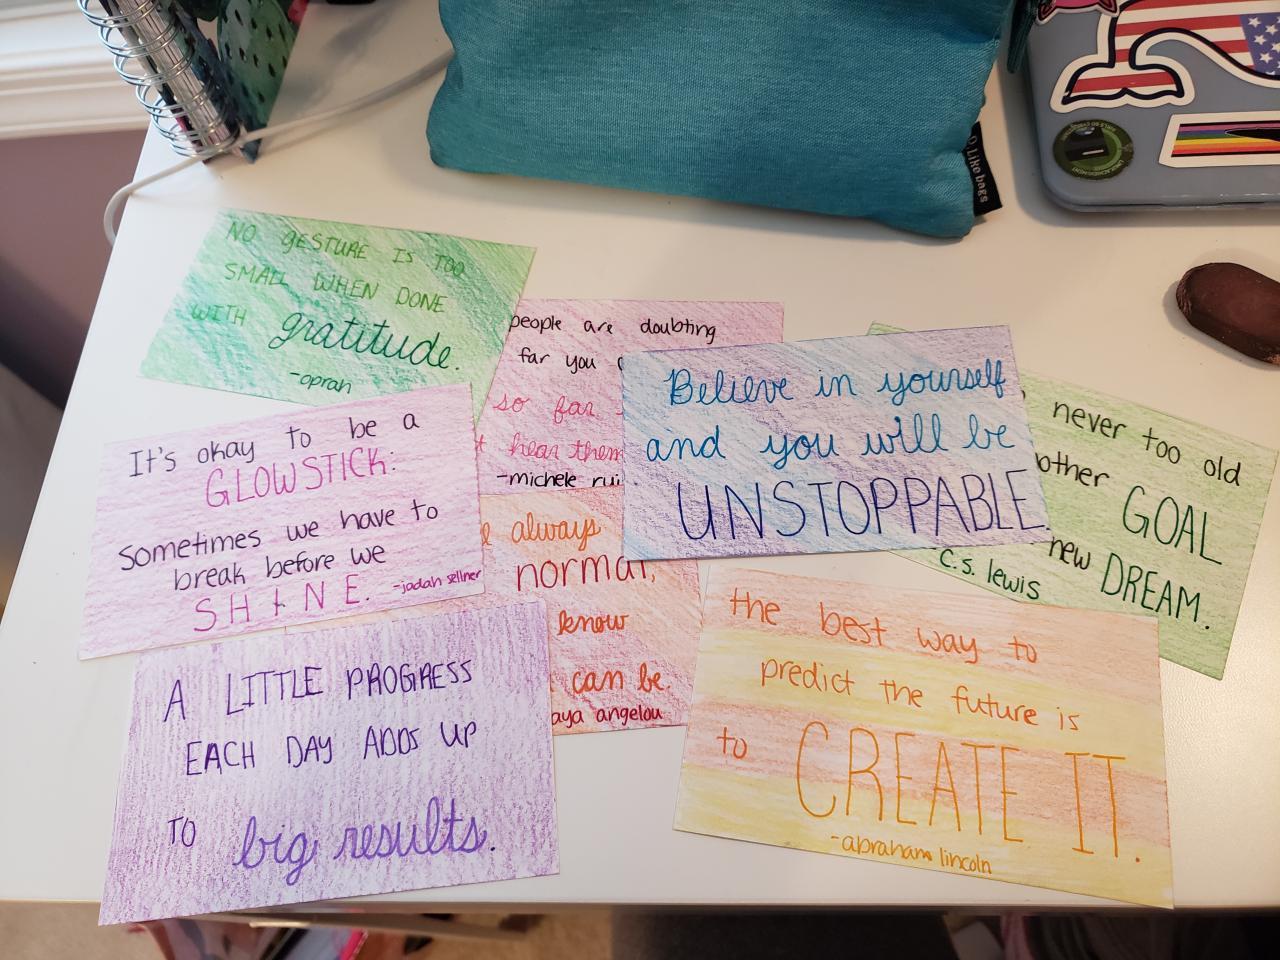 NO GESTURE IS TOO
SMALL WHEN DONE
WITH gratitude.
-oprah
people are doubting
far you
so far
hear them
-michele rui
Believe in yourself
and you will be
UNSTOPPABLE.
never too old
other GOAL
new DREAM.
C.S. lewis
It's okay to be a
GLOWSTICK:
Sometimes we have to
break before we
SHINE. -jadah sellner
always
normal,
know
can be.
aya angelou
A LITTLE PROGRESS
EACH DAY ADDS UP
TO big results.
the best way to
predict the future is
to CREATE IT.
-abraham lincoln
Like bags